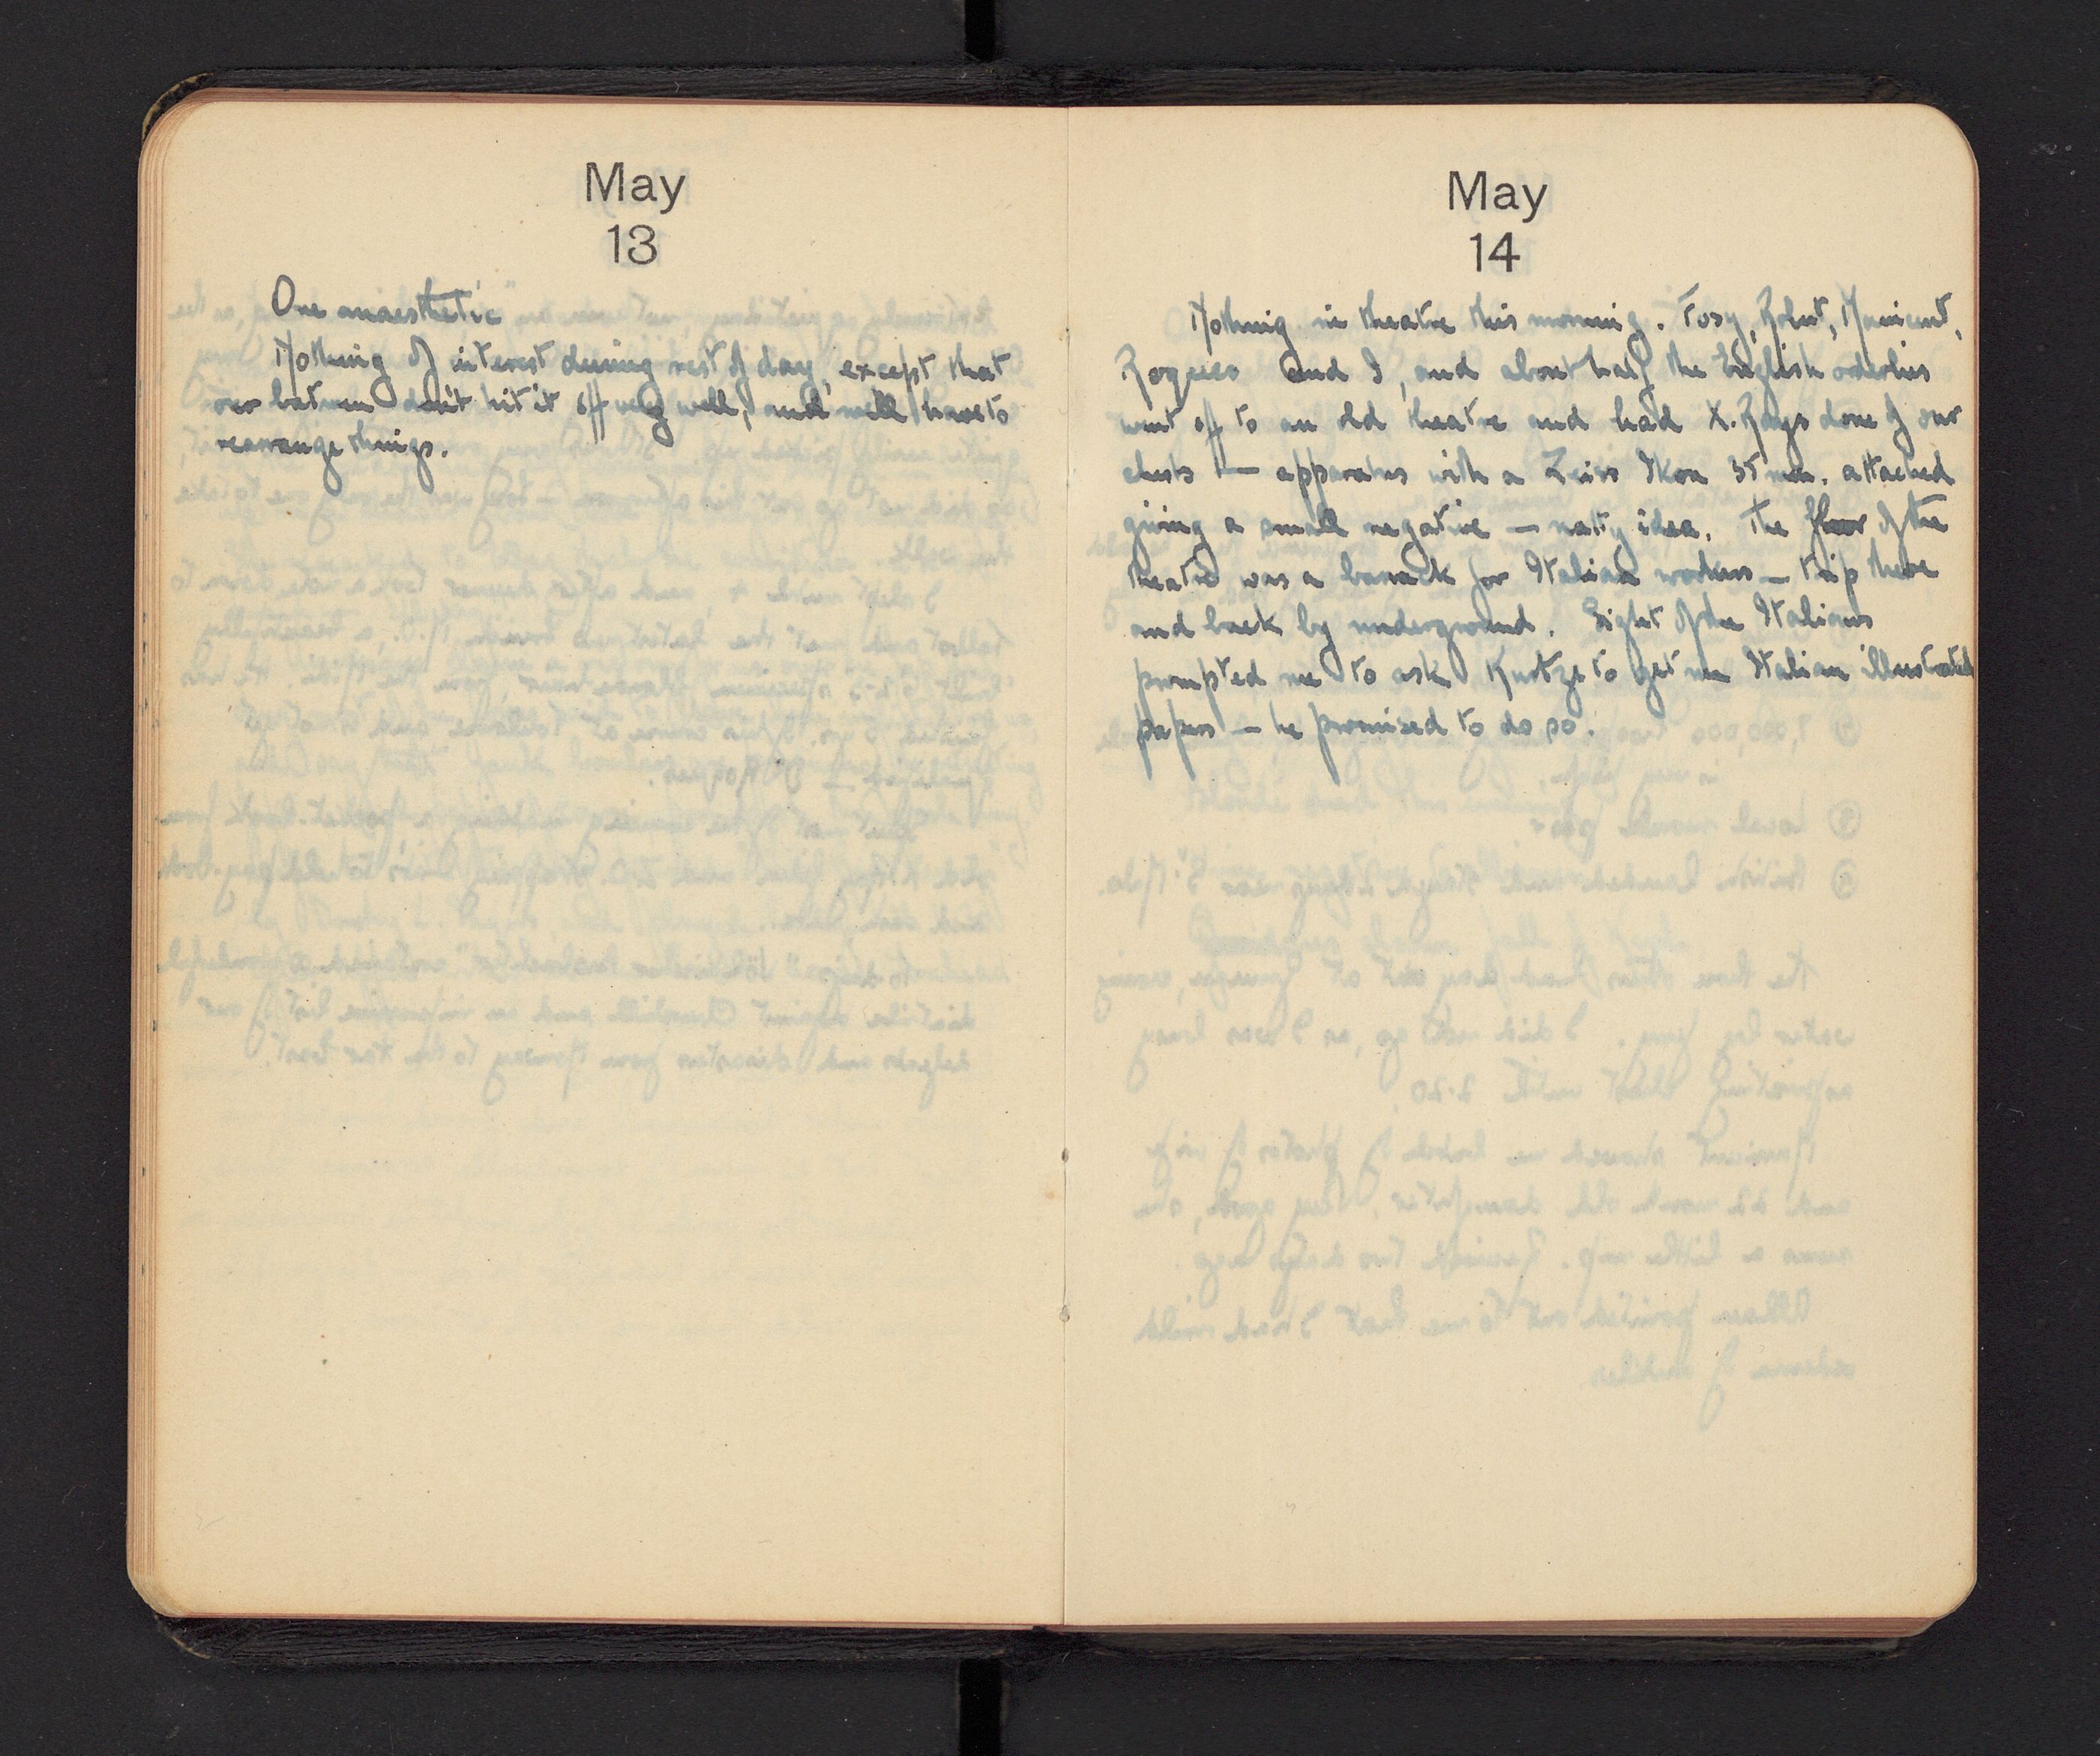 May
13
One anaesthetic
Nothing of interest during rest of day, except that
our batmen don't hit it off very well, and will have to
rearrange things.
May
14
Nothing in theatre this morning. Tusy, Robert,
Roques and I, and about half the English orderlies
went off to an old theatre and had X.Rays done of our
chests — apparatus with a Zeiss Ikon 35 mm. attached
giving a small negative — natty idea. The floor of the
theatre was a barrack for Italian workers — trip there
and back by underground. Sight of the Italians
prompted me to ask Kurtze to get me Italian illustrated
papers — he promised to do so.